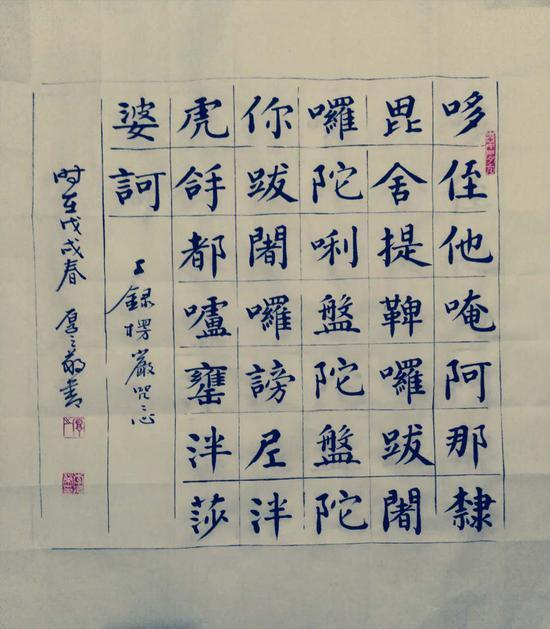 哆侄他唵阿那隸
毘舍提鞞囉跋闍
囉陀唎盤陀盤陀
你跋闍囉謗尼泮
虎𤙖都嚧罋泮莎
婆訶
録楞嚴咒心
时在戊戌春 书